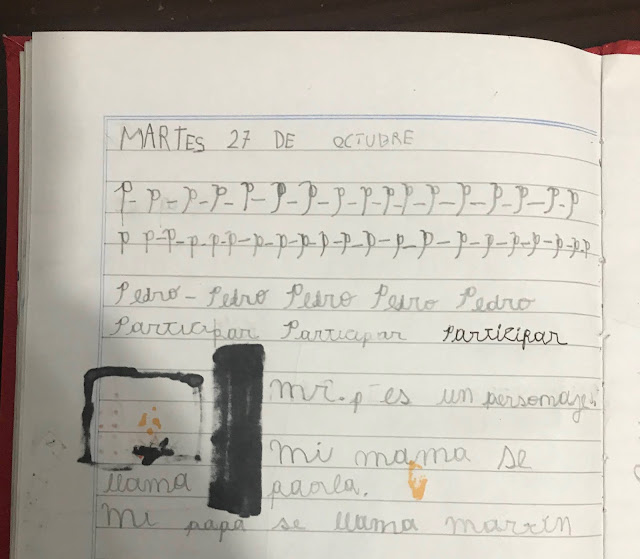 MARTES 27 DE OCTUBRE
P-P-P-P-P-P-P-P-P-P-P-P-P-P-P-P-P
p p-p-p-p-p-p-p-p-p-p-p-p-p-p-p-p-p-p-p-p-p
Pedro - Pedro Pedro Pedro Pedro
Participar Participar Partizipar
Mr. p es un personaje.
Mi mama se
llama paola.
Mi papa se llama martin